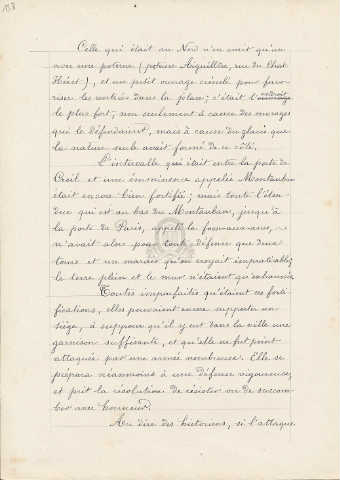 188
Celle qui était au Nord n'en avait qu'un
avec une poterne (poterne Aiguillère, rue du Chat
Héret), et un petit ouvrage crénelé pour favo-
riser les sorties dans la place; c'était l'endroit
le plus fort, non seulement à cause des marages
qui le défendaient, mais à cause du glacis que
la nature seule avait formé de ce côté.
L'intervalle qui était entre la porte de
Creil et une éminence appelée Montauban
était encore bien fortifié; mais toute l'éten-
due qui est au bas du Montauban, jusqu'à
la porte de Paris, appelé la
n'avait alors pour toute défense que deux
tours et un marais qu'on croyait impraticable;
le terre plein et le mur n'étaient qu'ébauchés.
Toutes imparfaites qu'étaient ces forti-
fications, elles pouvaient encore supporter un
siège, à supposer qu'il y eut dans la ville une
garnison suffisante, et qu'elle ne fut point
attaquée par une armée nombreuse. Elle se
prépara néanmoins à une défense vigoureuse,
et prit la résolution de résister ou de succom-
ber avec honneur.
Au dire des historiens, si l'attaque